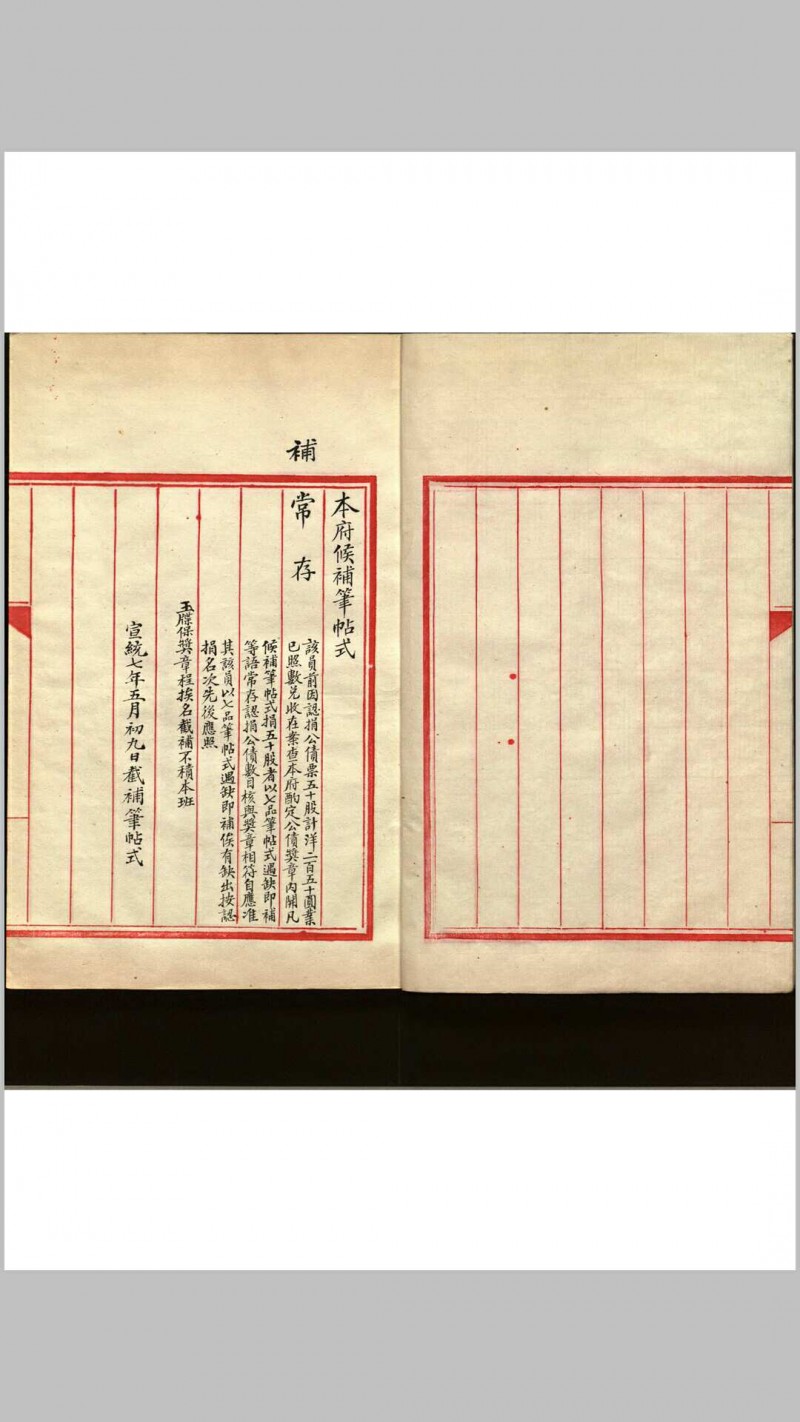 本府候補筆帖式
補
常存
該員前因認捐公債票五十股計洋二百五十圓業
已照數兌收在案查本府酌定公債獎章內開凡
候補筆帖式捐五十股者以七品筆帖式遇缺即補
等語常存認捐公債數目核與獎章相符自應准
其該員以七品筆帖式遇缺即補俟有缺出按認
捐名次先後應照
玉牒保獎章程挨名截補不積本班
宣統七年五月初九日截補筆帖式